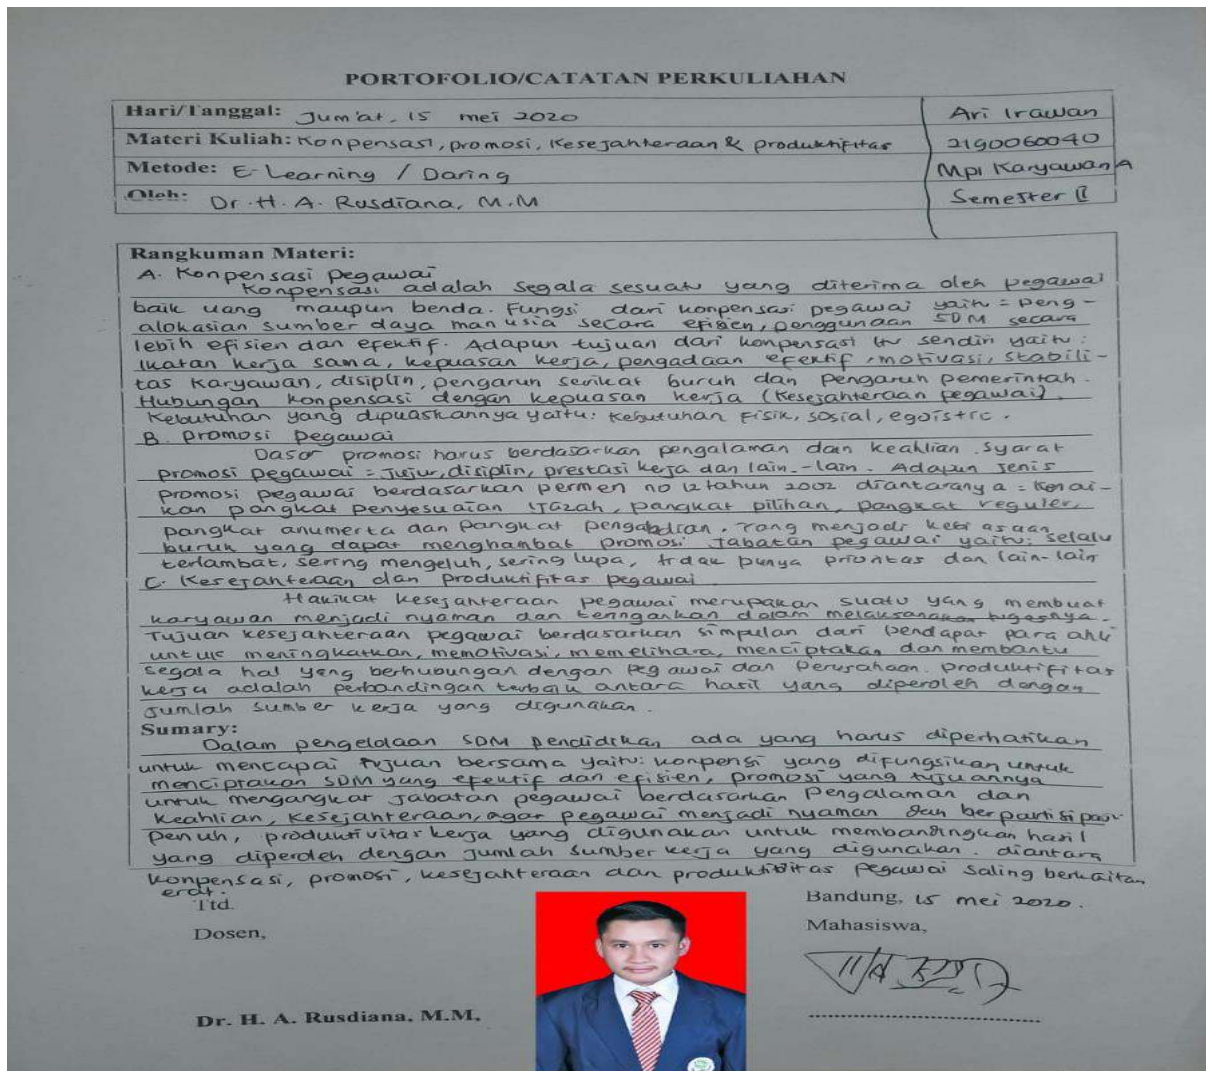 PORTOFOLIO/CATATAN PERKULIAHAN
Hari/Tanggal: Jum'at, 15 mei 2020
Ari Irawan
Materi Kuliah: Konpensasi, promosi, Kesejahteraan & produktifitas
2190060040
Metode: E-Learning / Daring
Mpi Karyawan A
Oleh: Dr. H. A. Rusdiana, M.M
Semester II
Rangkuman Materi:
A. Konpensasi pegawai
Konpensasi adalah segala sesuatu yang diterima oleh pegawai
baik uang maupun benda. Fungsi dari konpensasi pegawai yaitu = peng-
alokasian sumber daya manusia secara efisien, penggunaan SDM secara
lebih efisien dan efektif. Adapun tujuan dari konpensasi itu sendiri yaitu:
Ikatan kerja sama, kepuasan kerja, pengadaan efektif, motivasi, stabili-
tas karyawan, disiplin, pengaruh serikat buruh dan pengaruh pemerintah.
Hubungan konpensasi dengan kepuasan kerja (kesejahteraan pegawai).
Kebutuhan yang dipuaskannya yaitu: kebutuhan fisik, sosial, egoistic.
B. promosi pegawai
Dasar promosi harus berdasarkan pengalaman dan keahlian. Syarat
promosi pegawai = Jujur, disiplin, prestasi kerja dan lain-lain. Adapun jenis
promosi pegawai berdasarkan permen no 12 tahun 2002 diantaranya = Kenai-
kan pangkat penyesuaian ijazah, pangkat pilihan, pangkat reguler,
pangkat anumerta dan pangkat pengabdian. Yang menjadi kebiasaan
buruk yang dapat menghambat promosi jabatan pegawai yaitu: selalu
terlambat, sering mengeluh, sering lupa, tidak punya prioritas dan lain-lain
C. Kesejahteraan dan produktifitas pegawai
Hakikat kesejahteraan pegawai merupakan suatu yang membuat
karyawan menjadi nyaman dan teringankan dalam melaksanakan tugasnya.
Tujuan kesejahteraan pegawai berdasarkan simpulan dari pendapat para ahli
untuk meningkatkan, memotivasi, memelihara, menciptakan dan membantu
segala hal yang berhubungan dengan pegawai dan perusahaan. produktifitas
kerja adalah perbandingan terbaik antara hasil yang diperoleh dengan
jumlah sumber kerja yang digunakan.
Sumary:
Dalam pengelolaan SDM pendidikan ada yang harus diperhatikan
untuk mencapai tujuan bersama yaitu: konpensi yang difungsikan untuk
menciptakan SDM yang efektif dan efisien, promosi yang tujuannya
untuk mengangkat jabatan pegawai berdasarkan pengalaman dan
keahlian, kesejahteraan, agar pegawai menjadi nyaman dan berpartisipasi
penuh, produktivitas kerja yang digunakan untuk membandingkan hasil
yang diperoleh dengan jumlah sumber kerja yang digunakan. diantara
konpensasi, promosi, kesejahteraan dan produktibitas pegawai saling berkaitan
erat.
Ttd.
Bandung, 15 mei 2020.
Dosen,
Mahasiswa,
Dr. H. A. Rusdiana, M.M,